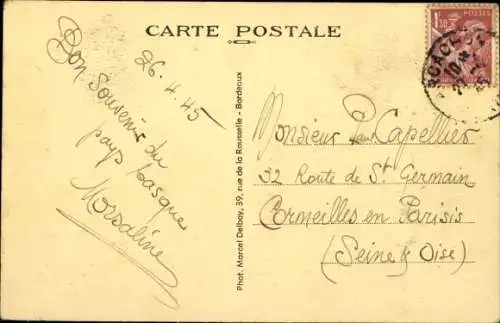 CARTE POSTALE
26.4.45
Bon Souvenir du
pays basque
Phot. Marcel Delboy, 39, rue de la Rousselle - Bordeaux
POSTES
1F50
Monsieur Lapellier
32 Route de St Germain
Cormeilles en Parisis
(Seine & Oise)